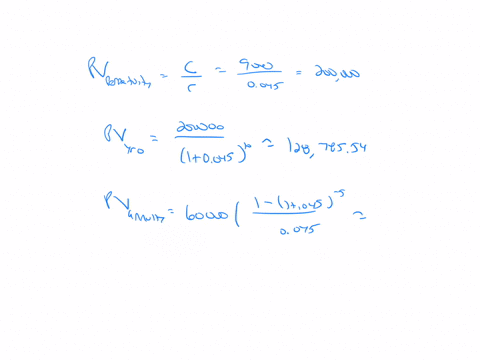 PV perpetuity = C/r = 9000/0.045 = 200,000
PV yr0 = 200000/(1+0.045)^10 ≈ 128,785.54
PV annuity = 60000 ( 1-(1+.045)^-5 / 0.045 ) ≈